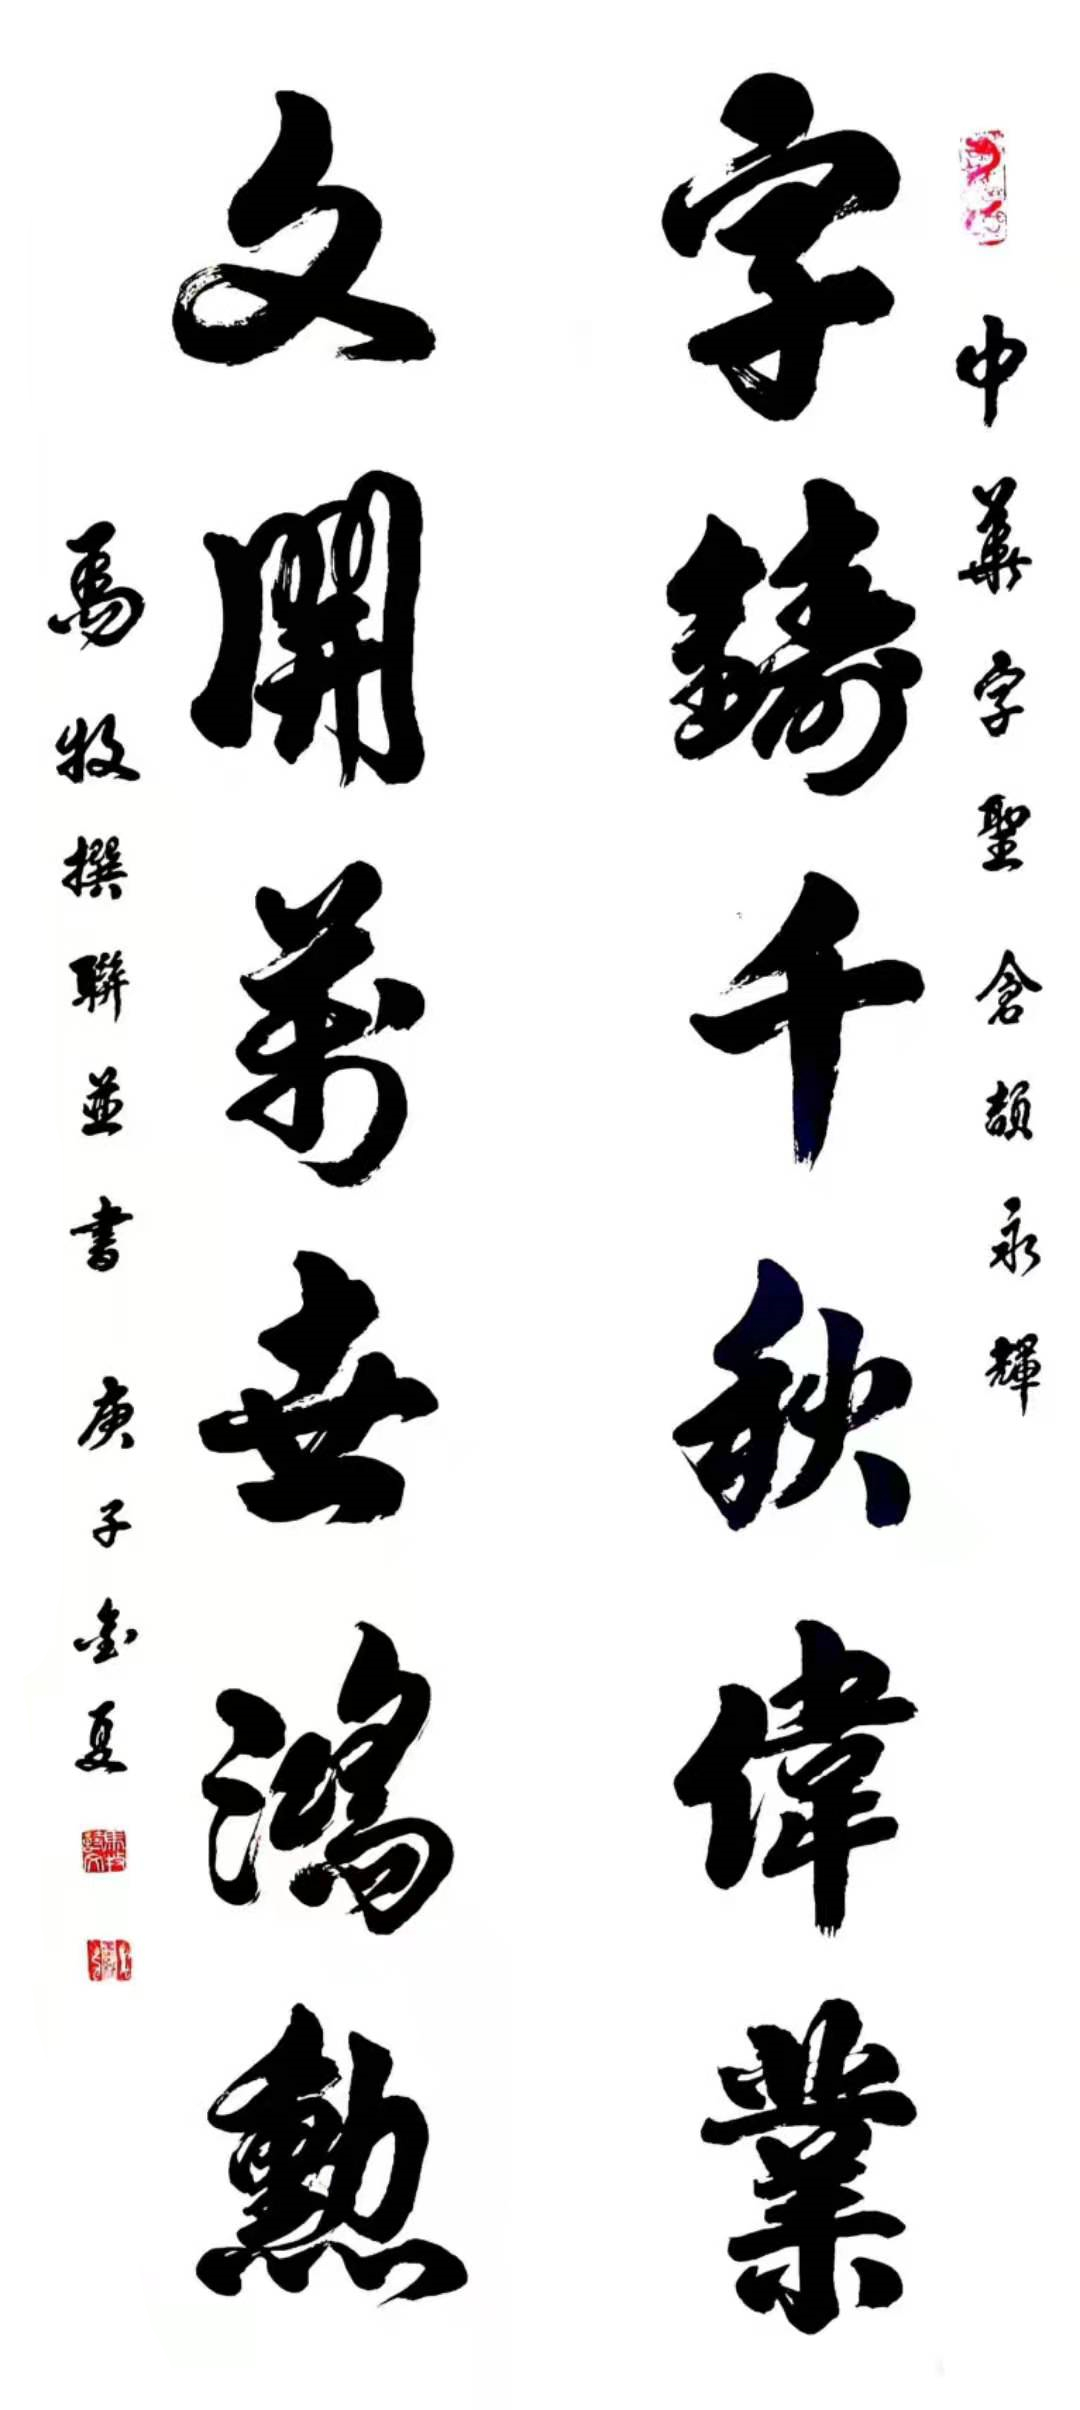 中華字聖倉頡永輝
字鑄千秋偉業
文開萬世鴻勳
馬牧撰聯並書 庚子金夏